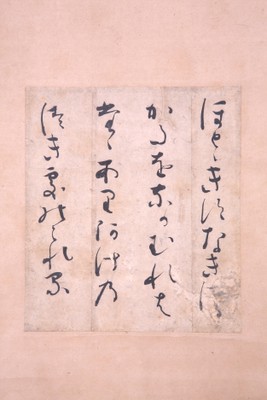 ほとゝきすなきつる
かたをなかむれは
たゝありあけの
つきそのこれる